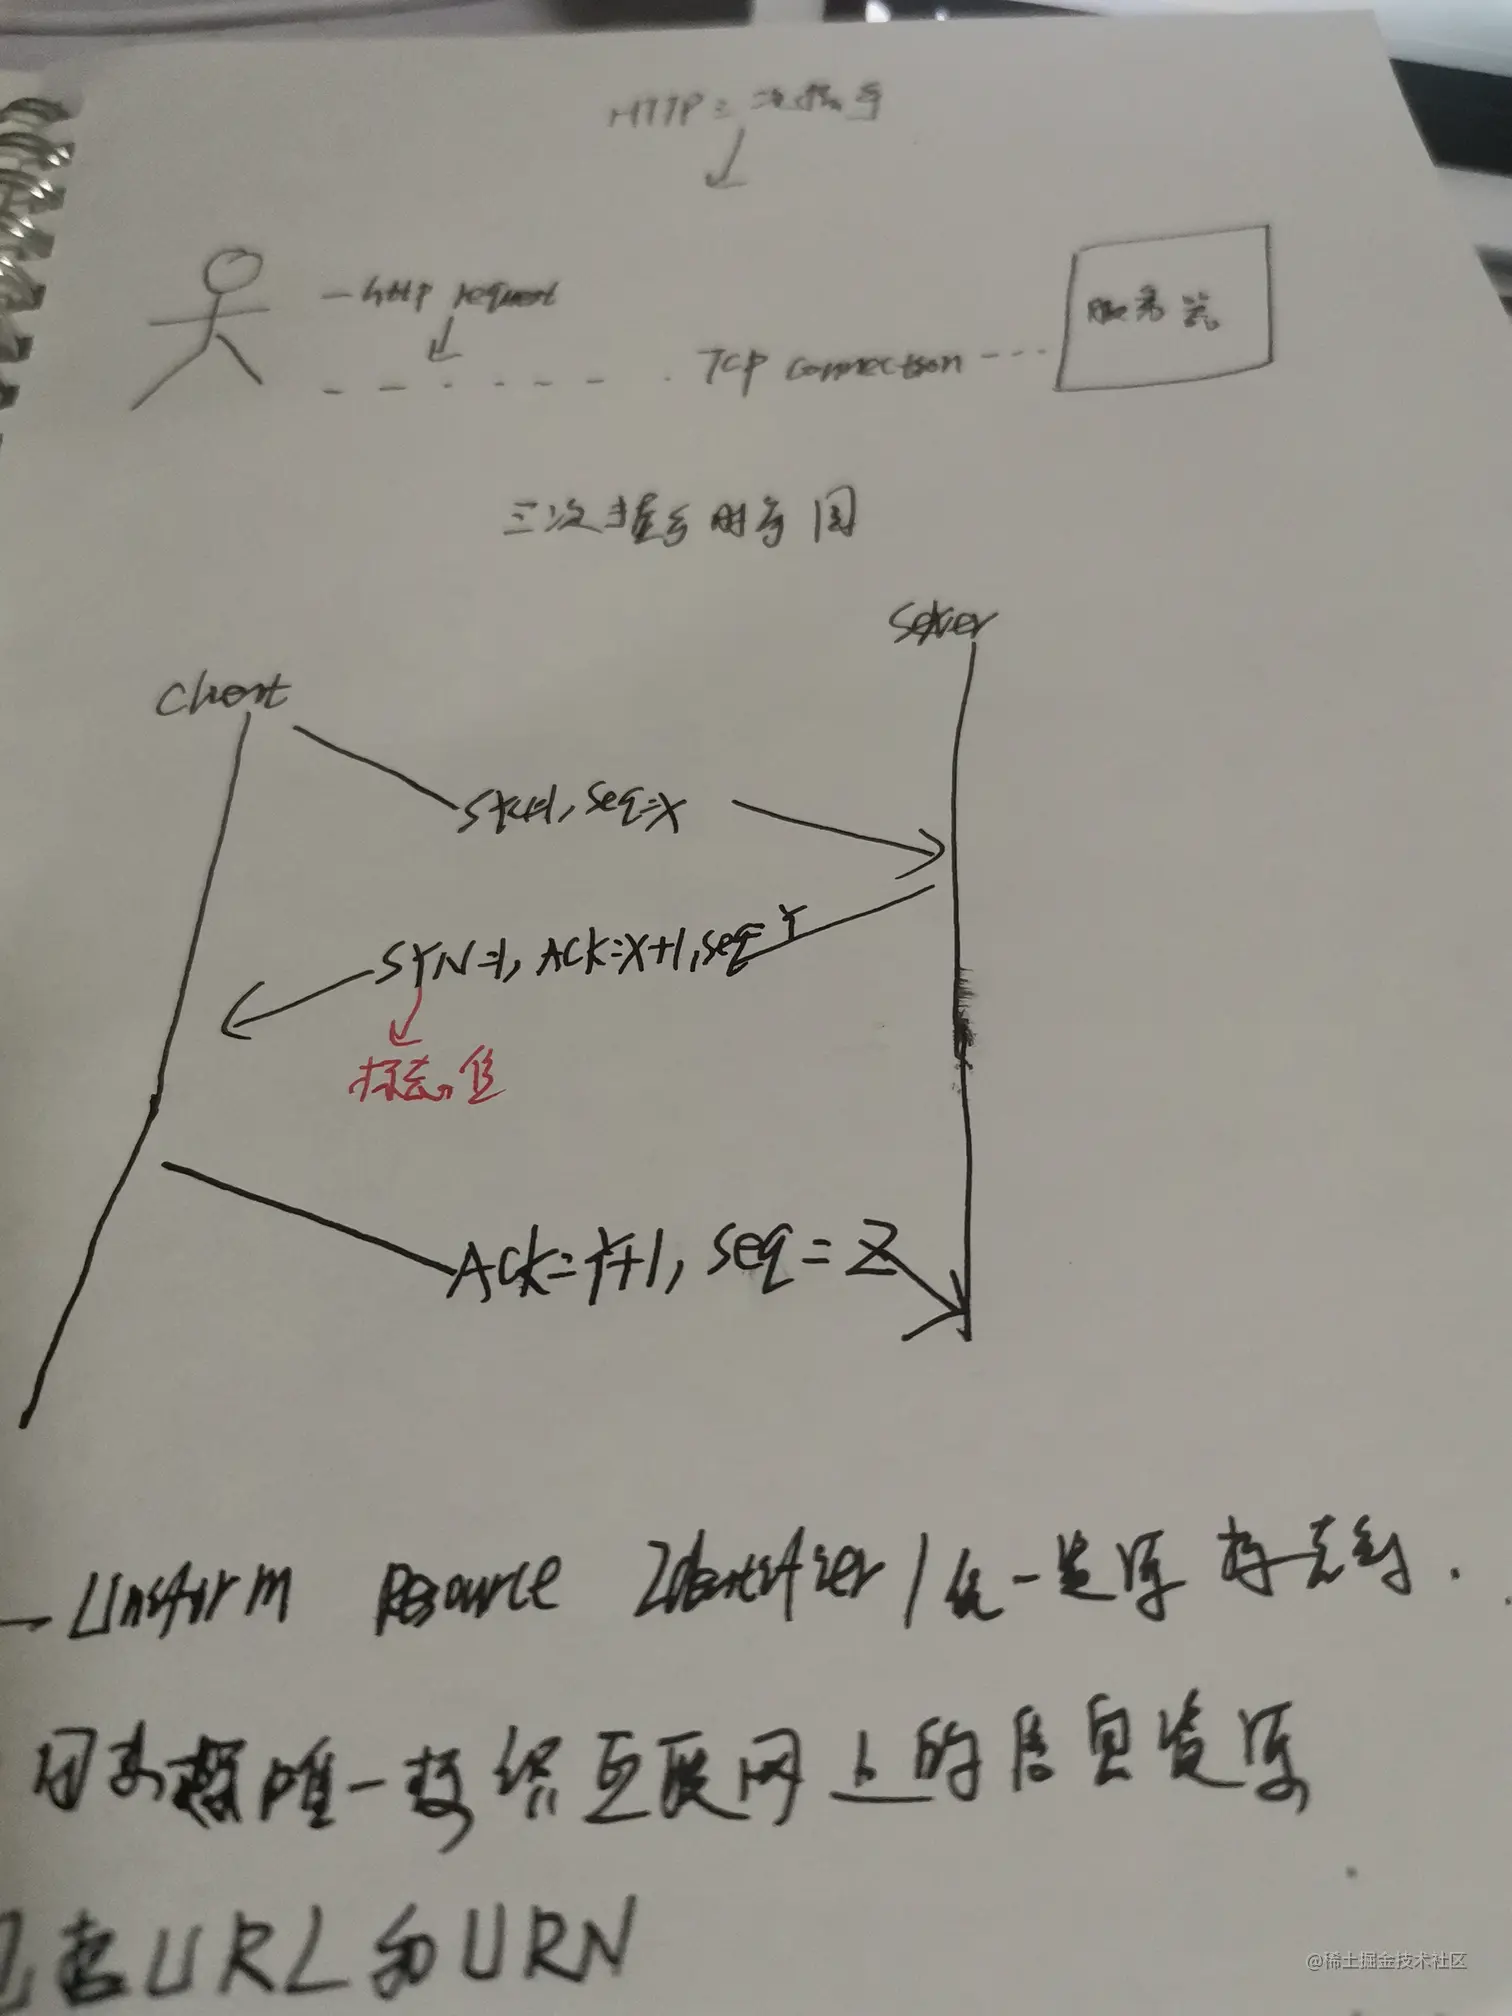 HTTP三次握手
http request
服务器
TCP connection
三次握手时序图
Server
Client
SYN=1, seq=X
SYN=1, ACK=X+1, seq=Y
标志位
ACK=Y+1, seq=Z
Uniform Resource Identifier / 统一资源标志符.
用来唯一标识互联网上的信息资源
包括URL和URN
@稀土掘金技术社区